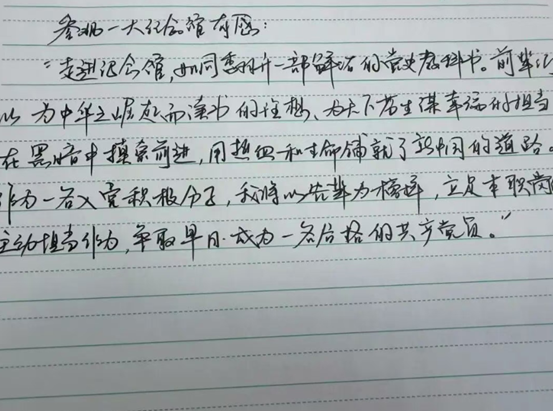 参观一大纪念馆有感：
“走进纪念馆，如同翻开一部鲜活的党史教科书。前辈们
以为中华之崛起而读书的理想、为天下苍生谋幸福的担当
在黑暗中摸索前进，用热血和生命铺就了新中国的道路。
作为一名入党积极分子，我将以先辈为榜样，立足本职岗
主动担当作为，争取早日成为一名合格的共产党员。”